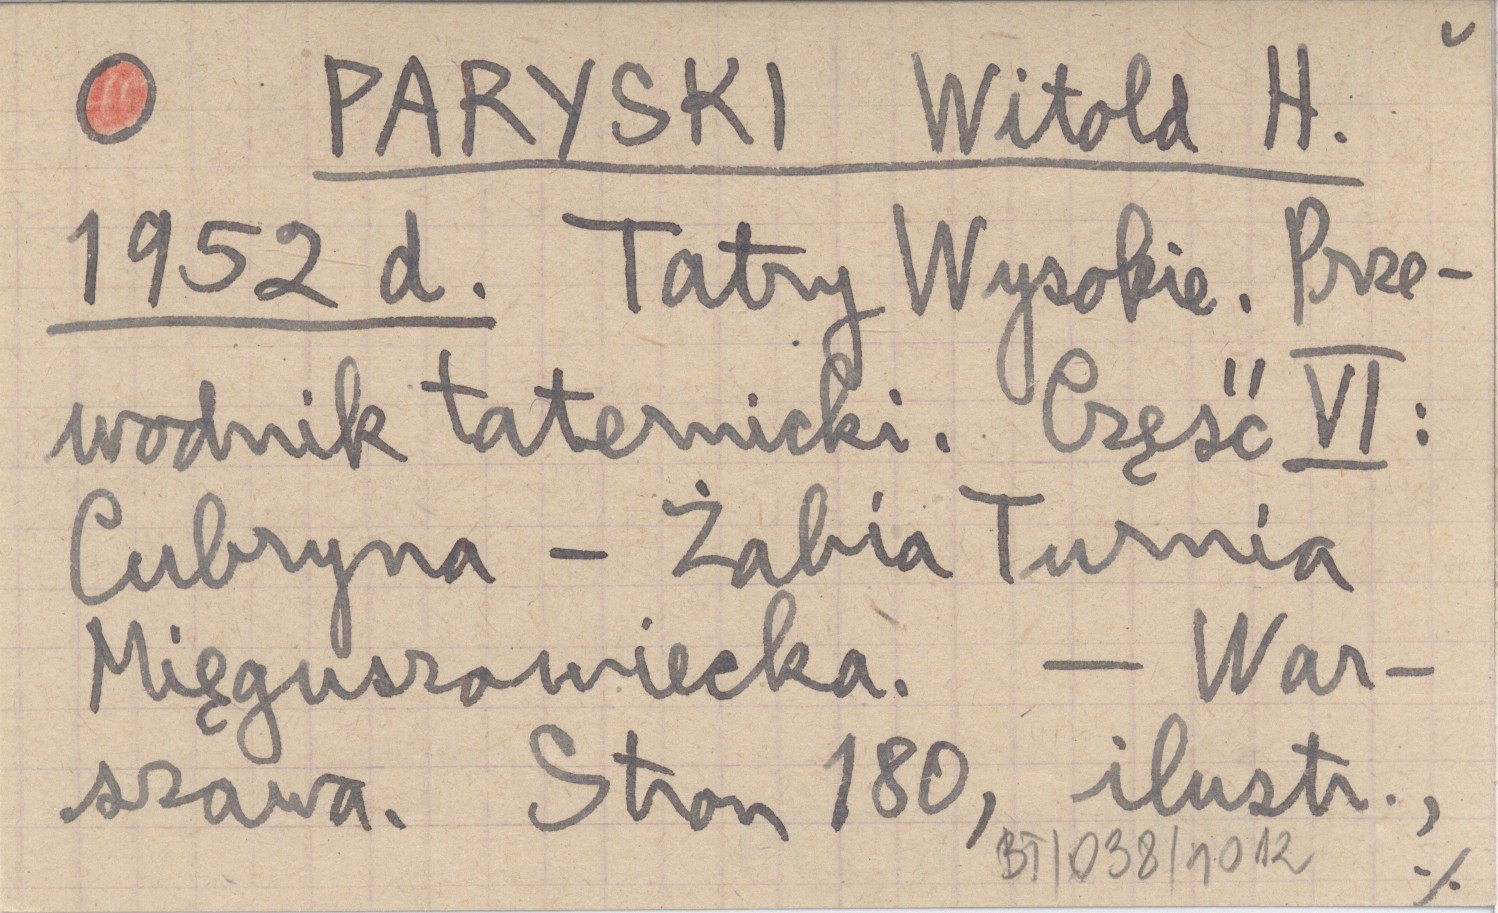 PARYSKI Witold H.
1952 d. Tatry Wysokie. Prze-
wodnik taternicki. Część VI:
Cubryna – Żabia Turnia
Mięguszowiecka. — War-
szawa. Stron 180, ilustr.,
BT/038/1012
./.